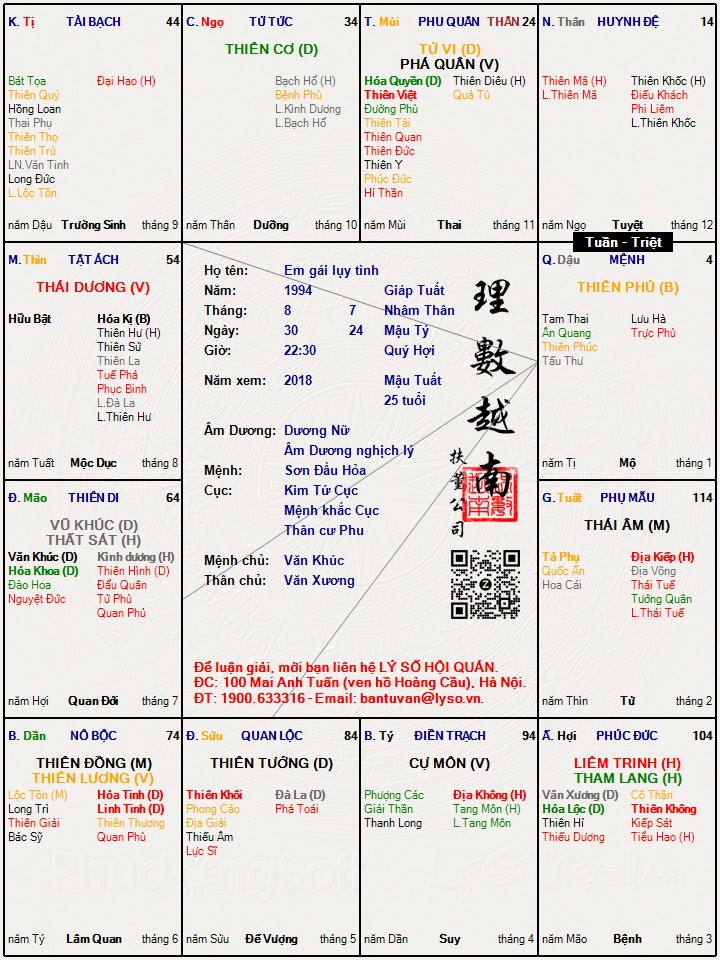 K. Tị TÀI BẠCH 44
Bát Tọa
Thiên Quý
Hồng Loan
Thai Phụ
Thiên Thọ
Thiên Trù
LN.Văn Tinh
Long Đức
L.Lộc Tồn
Đại Hao (H)
năm Dậu Trường Sinh tháng 9
C. Ngọ TỬ TỨC 34
THIÊN CƠ (D)
Bạch Hổ (H)
Bệnh Phù
L.Kình Dương
L.Bạch Hổ
năm Thân Dưỡng tháng 10
T. Mùi PHU QUÂN THÂN 24
TỬ VI (D)
PHÁ QUÂN (V)
Hóa Quyền (D)
Thiên Việt
Đường Phù
Thiên Tài
Thiên Quan
Thiên Đức
Thiên Y
Phúc Đức
Hỉ Thần
Thiên Diêu (H)
Quả Tú
năm Mùi Thai tháng 11
N. Thân HUYNH ĐỆ 14
Thiên Mã (H)
L.Thiên Mã
Thiên Khốc (H)
Điếu Khách
Phi Liêm
L.Thiên Khốc
năm Ngọ Tuyệt tháng 12
Tuần - Triệt
M. Thìn TẬT ÁCH 54
THÁI DƯƠNG (V)
Hữu Bật
Hóa Kị (B)
Thiên Hư (H)
Thiên Sứ
Thiên La
Tuế Phá
Phục Binh
L.Đà La
L.Thiên Hư
năm Tuất Mộc Dục tháng 8
Họ tên: Em gái lụy tình
Năm: 1994 Giáp Tuất
Tháng: 8 7 Nhâm Thân
Ngày: 30 24 Mậu Tý
Giờ: 22:30 Quý Hợi
Năm xem: 2018 Mậu Tuất
25 tuổi
Âm Dương: Dương Nữ
Âm Dương nghịch lý
Mệnh: Sơn Đầu Hỏa
Cục: Kim Tứ Cục
Mệnh khắc Cục
Thân cư Phu
Mệnh chủ: Văn Khúc
Thân chủ: Văn Xương
理數越南
扶董公司
Để luận giải, mời bạn liên hệ LÝ SỐ HỘI QUÁN.
ĐC: 100 Mai Anh Tuấn (ven hồ Hoàng Cầu), Hà Nội.
ĐT: 1900.633316 - Email: bantuvan@lyso.vn.
Q. Dậu MỆNH 4
THIÊN PHỦ (B)
Tam Thai
Ân Quang
Thiên Phúc
Tấu Thư
Lưu Hà
Trực Phù
năm Tị Mộ tháng 1
Đ. Mão THIÊN DI 64
VŨ KHÚC (D)
THẤT SÁT (H)
Văn Khúc (D)
Hóa Khoa (D)
Đào Hoa
Nguyệt Đức
Kình dương (H)
Thiên Hình (D)
Đẩu Quân
Tử Phù
Quan Phủ
năm Hợi Quan Đới tháng 7
G. Tuất PHỤ MẪU 114
THÁI ÂM (M)
Tả Phụ
Quốc Ấn
Hoa Cái
Địa Kiếp (H)
Địa Võng
Thái Tuế
Tướng Quân
L.Thái Tuế
năm Thìn Tử tháng 2
B. Dần NÔ BỘC 74
THIÊN ĐỒNG (M)
THIÊN LƯƠNG (V)
Lộc Tồn (M)
Long Trì
Thiên Giải
Bác Sỹ
Hỏa Tinh (D)
Linh Tinh (D)
Thiên Thương
Quan Phù
năm Tý Lâm Quan tháng 6
Đ. Sửu QUAN LỘC 84
THIÊN TƯỚNG (D)
Thiên Khôi
Phong Cáo
Địa Giải
Thiếu Âm
Lực Sĩ
Đà La (D)
Phá Toái
năm Sửu Đế Vượng tháng 5
B. Tý ĐIỀN TRẠCH 94
CỰ MÔN (V)
Phượng Các
Giải Thần
Thanh Long
Địa Không (H)
Tang Môn (H)
L.Tang Môn
năm Dần Suy tháng 4
Ấ. Hợi PHÚC ĐỨC 104
LIÊM TRINH (H)
THAM LANG (H)
Văn Xương (D)
Hóa Lộc (D)
Thiên Hỉ
Thiếu Dương
Cô Thần
Thiên Không
Kiếp Sát
Tiểu Hao (H)
năm Mão Bệnh tháng 3